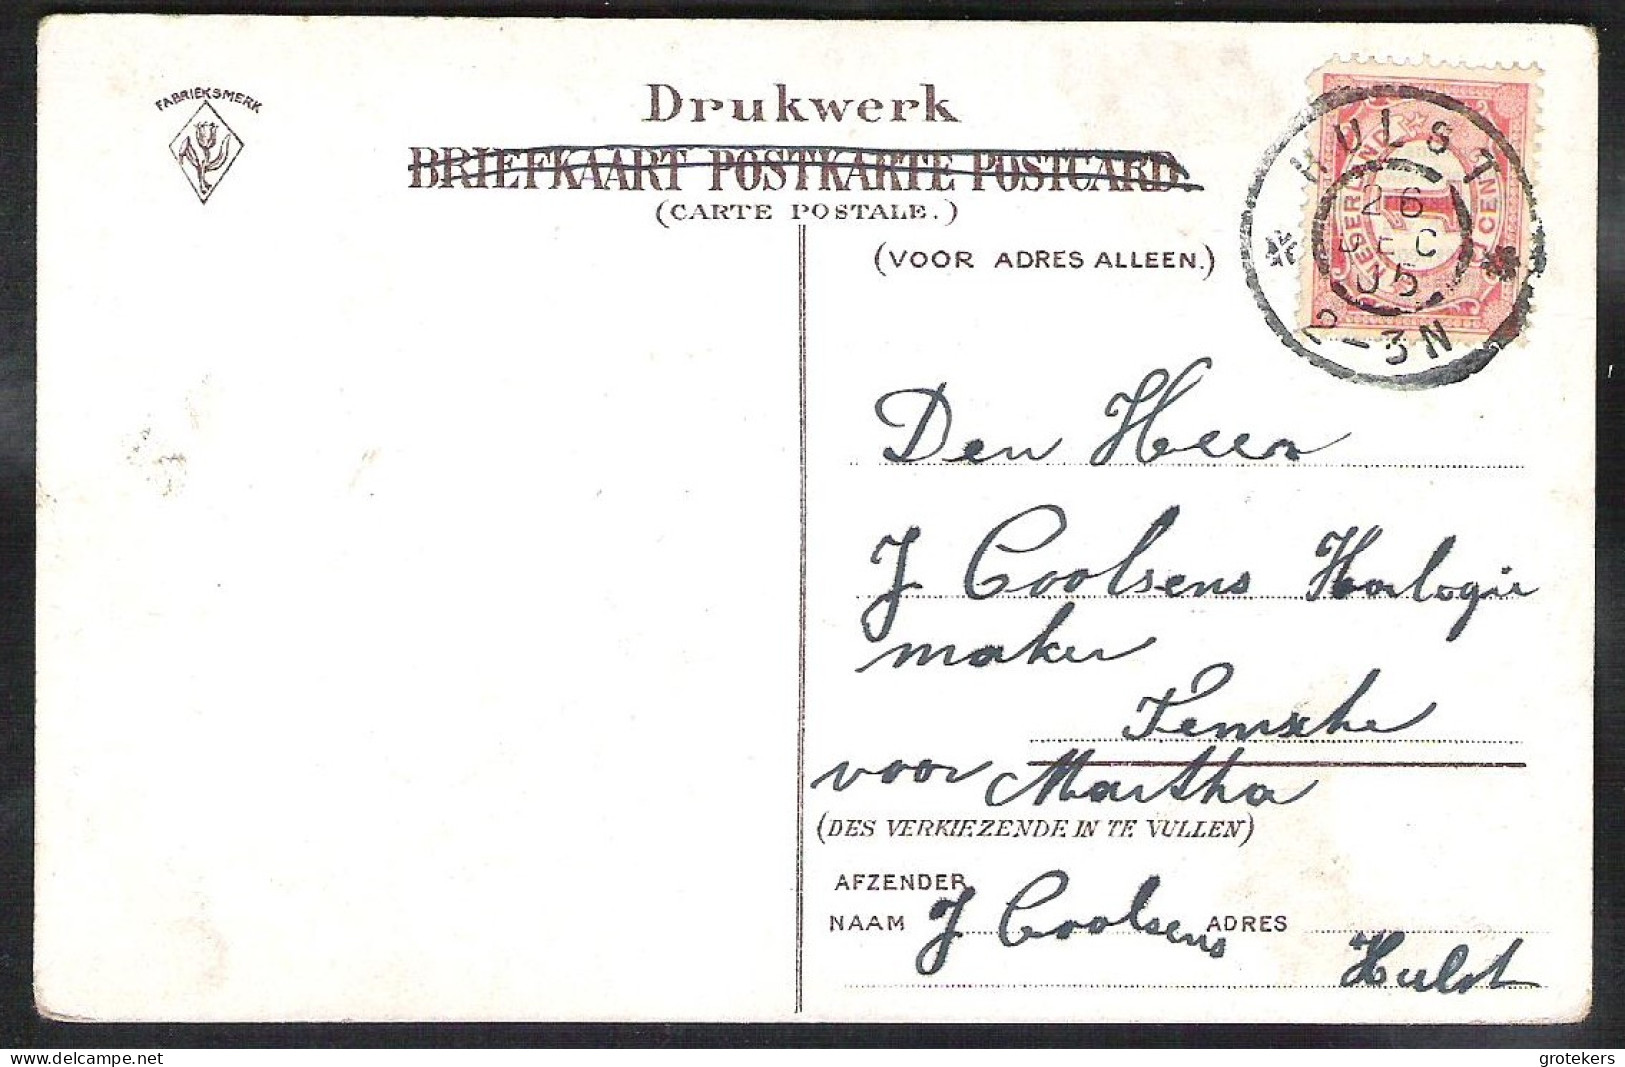 FABRIEKSMERK
Drukwerk
BRIEFKAART POSTKARTE POSTCARD
(CARTE POSTALE.)
(VOOR ADRES ALLEEN.)
NEDERLAND
1
1 CENT
HULST
26
DEC
05
2-3N
Den Heer
J Coolsens Horlogie
maker
Temsche
voor Martha
(DES VERKIEZENDE IN TE VULLEN)
AFZENDER
NAAM J Coolsens ADRES
Hulst
delcampe.net
grotekers